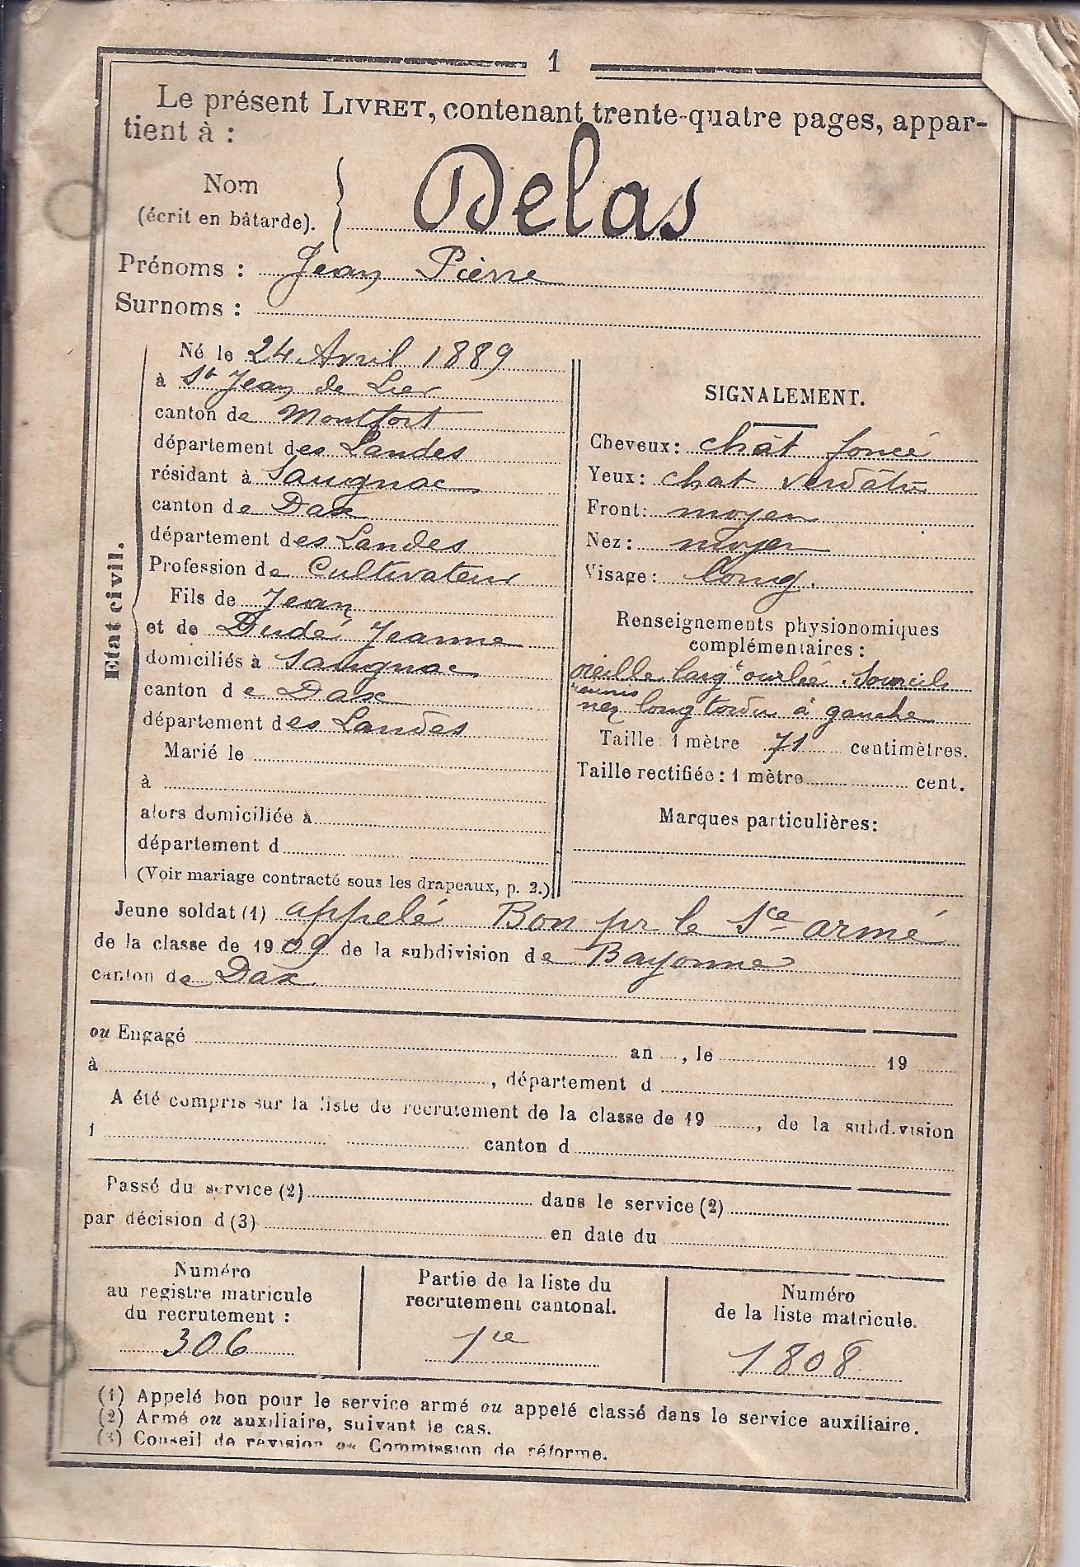 1
Le présent LIVRET, contenant trente-quatre pages, appar-
tient à :
Nom
(écrit en bâtarde).
Delas
Prénoms : Jean Pierre
Surnoms :
Etat civil.
Né le 24 Avril 1889
à St Jean de Lier
canton de Montfort
département des Landes
résidant à Saugnac
canton de Dax
département des Landes
Profession de Cultivateur
Fils de Jean
et de Dudé Jeanne
domiciliés à Saugnac
canton de Dax
département des Landes
Marié le
à
alors domiciliée à
département d
(Voir mariage contracté sous les drapeaux, p. 2.)
SIGNALEMENT.
Cheveux: chât foncé
Yeux: chat verdâtre
Front: moyen
Nez: moyen
Visage: long.
Renseignements physionomiques
complémentaires :
oreille larg t ourlée. Sourcils
réunis
nez long tordu à gauche
Taille 1 mètre 71 centimètres.
Taille rectifiée : 1 mètre cent.
Marques particulières:
Jeune soldat (1) appelé Bon pr le sce armé
de la classe de 1909 de la subdivision de Bayonne
canton de Dax
ou Engagé an , le 19
à , département d
A été compris sur la liste de recrutement de la classe de 19 , de la subdivision
canton d
Passé du service (2) dans le service (2)
par décision d (3) en date du
Numéro
au registre matricule
du recrutement :
306
Partie de la liste du
recrutement cantonal.
1re
Numéro
de la liste matricule.
1808
(1) Appelé bon pour le service armé ou appelé classé dans le service auxiliaire.
(2) Armé ou auxiliaire, suivant le cas.
(3) Conseil de révision ou Commission de réforme.